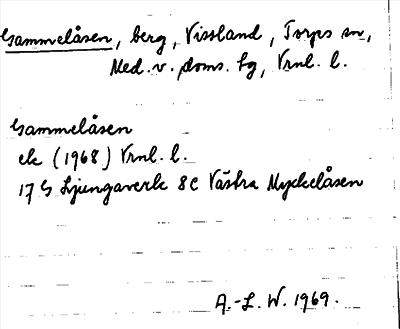 Gammelåsen, berg, Vissland, Torps sn,
Med. v. doms. tg, Vrnl. l.
Gammelåsen
ek (1968) Vrnl. l.
17 G Ljungaverk 8 c Västra Myckelåsen
A.-L. W. 1969.